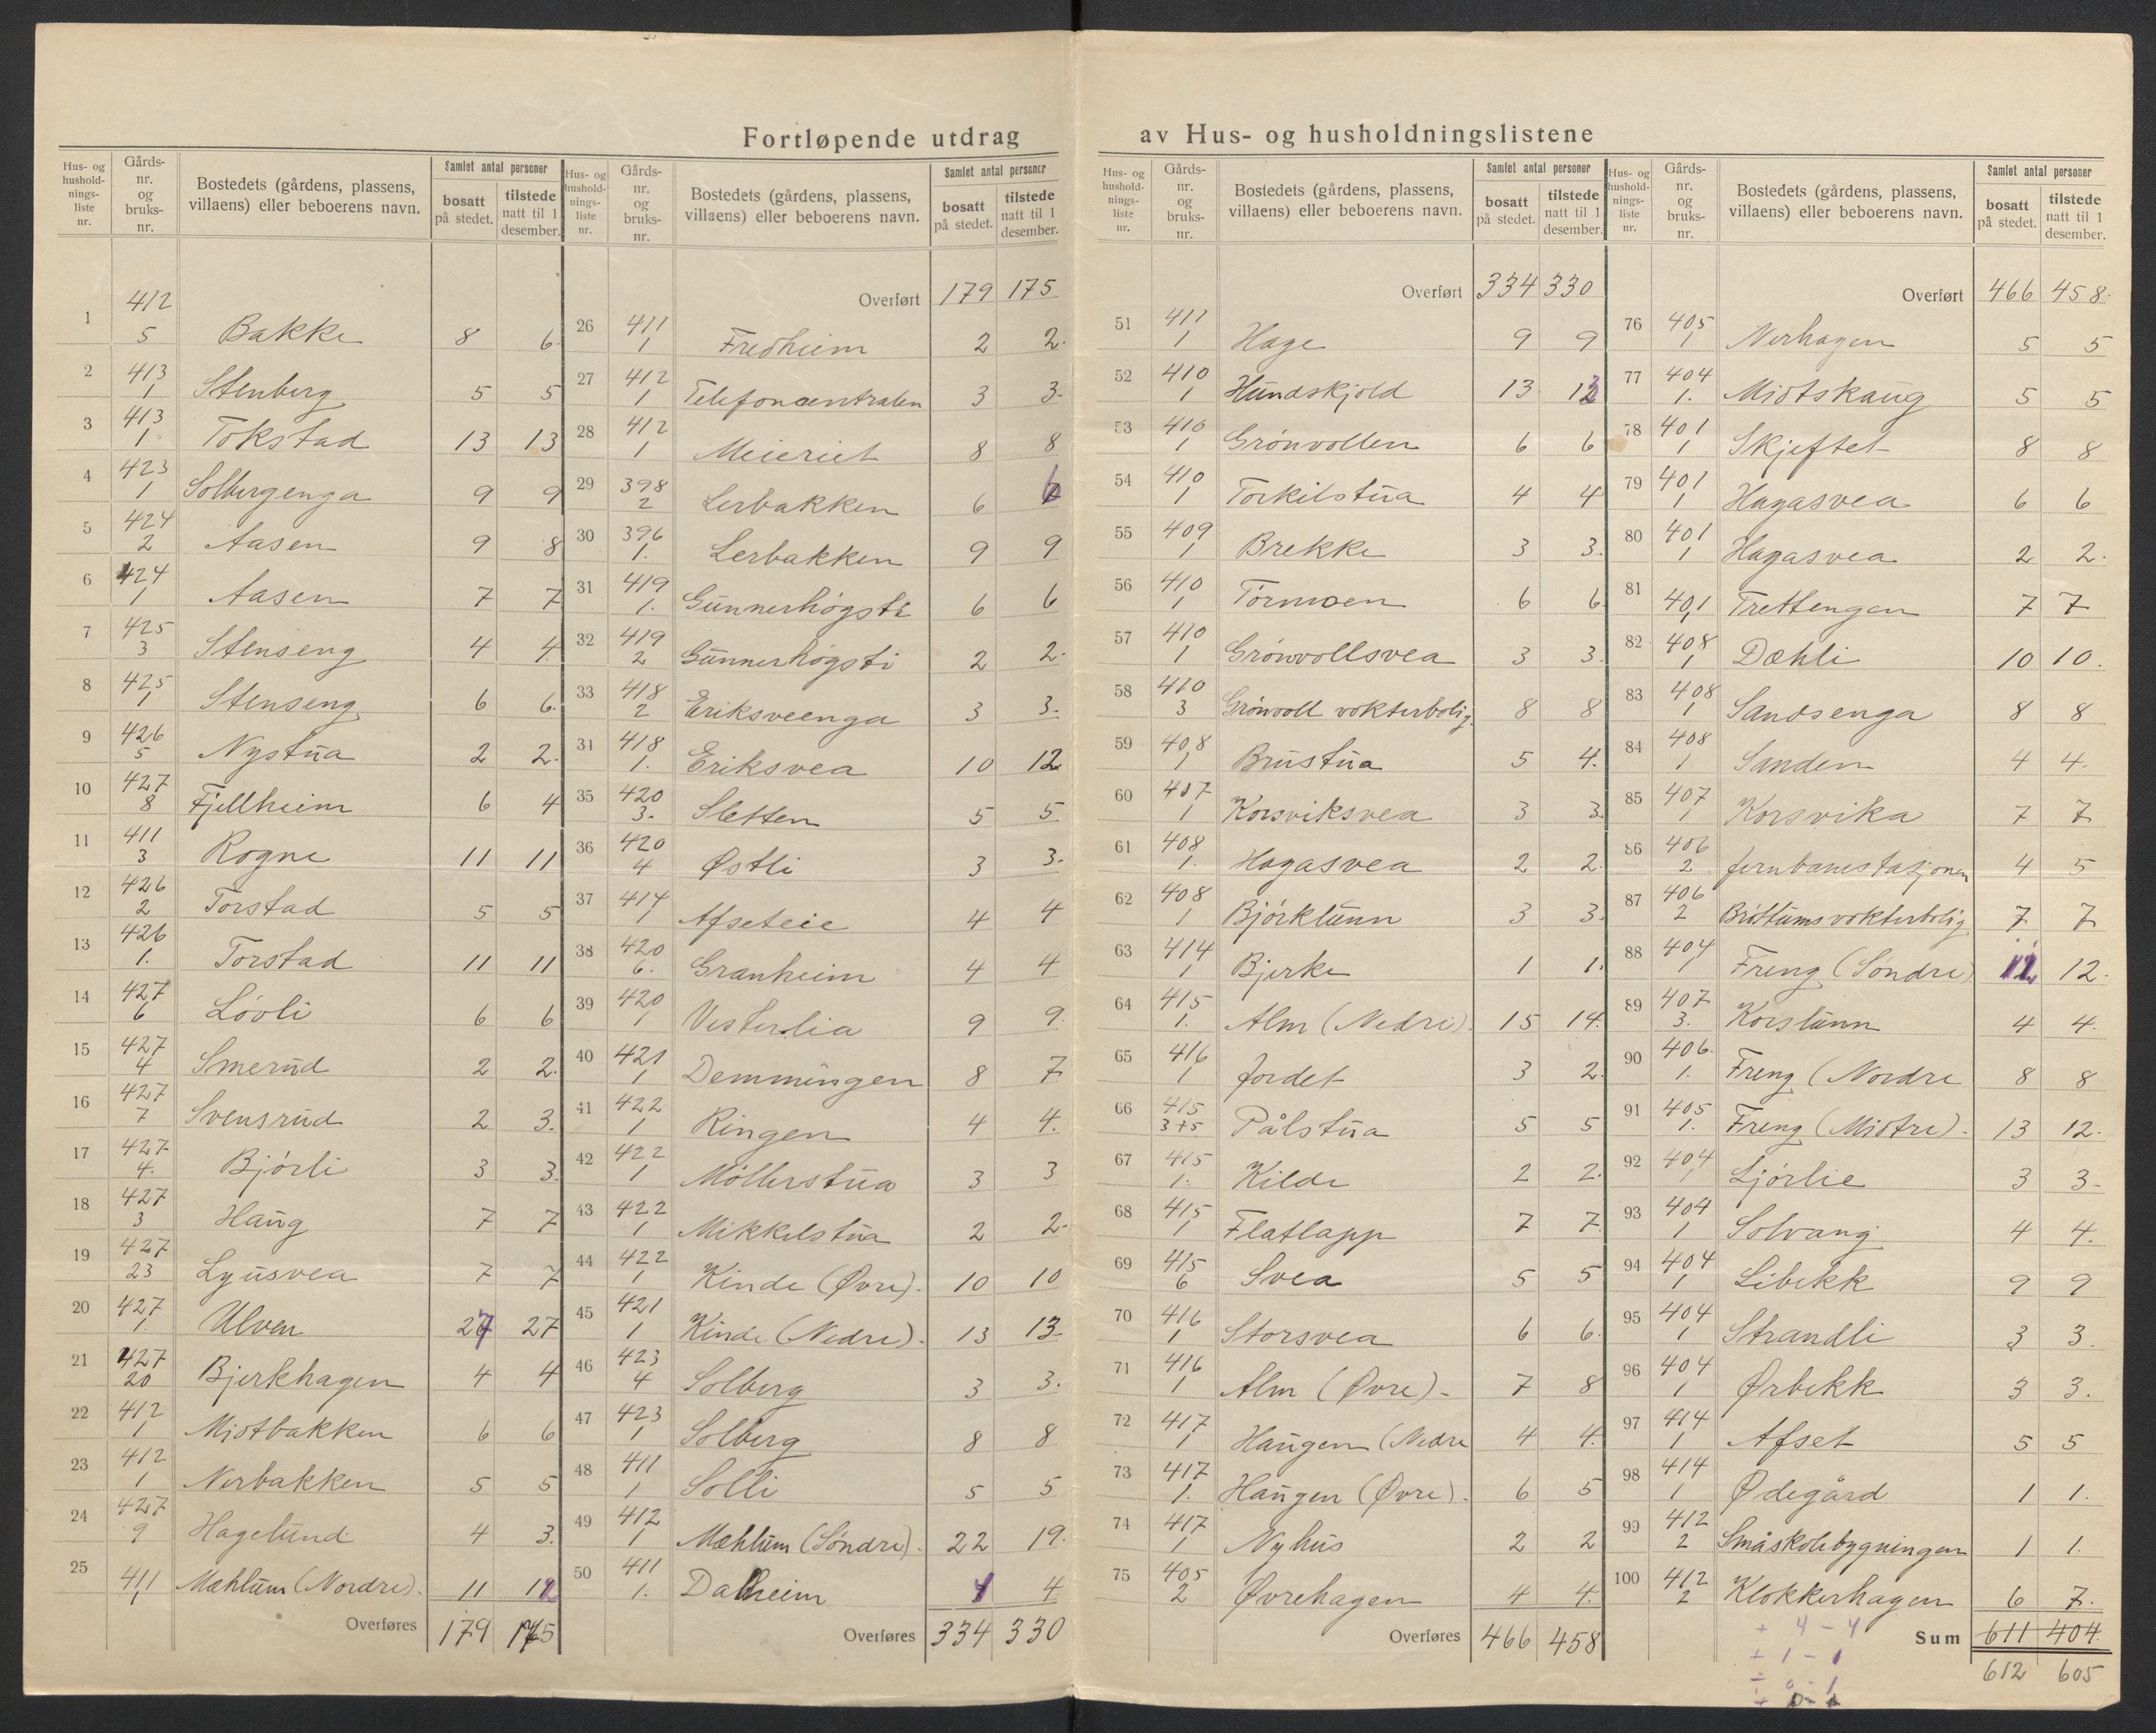 Fortløpende utdrag av Hus- og husholdningslistene
Hus- og husholdningsliste nr. | Gårds-nr. og bruks-nr. | Bostedets (gårdens, plassens, villaens) eller beboerens navn. | Samlet antal personer | bosatt på stedet. | tilstede natt til 1 desember.
1 412 5 Bakke 8 6
2 413 1 Stenberg 5 5
3 413 1 Tokstad 13 13
4 423 1 Solbergenga 9 9
5 424 2 Aasen 9 8
6 424 1 Aasen 7 7
7 425 3 Stenseng 4 4
8 425 1 Stenseng 6 6.
9 426 5 Nystua 2 2.
10 427 8 Fjellheim 6 4
11 411 3 Rogne 11 11
12 426 2 Torstad 5 5
13 426 1. Torstad 11 11
14 427 6 Lövli 6 6
15 427 4 Smerud 2 2.
16 427 7 Svensrud 2 3.
17 427 4. Bjørli 3 3.
18 427 3 Haug 7 7
19 427 23 Lyusvea 7 7
20 427 1. Ulven 27 27
21 427 20 Bjerkhagen 4 4
22 412 1 Midtbakken 6 6
23 412 1 Nerbakken 5 5
24 427 9 Hagelund 4 3.
25 411 1 Mæhlum (Nordre). 11 12
Overføres 179 175
Hus- og husholdningsliste nr. | Gårds-nr. og bruks-nr. | Bostedets (gårdens, plassens, villaens) eller beboerens navn. | Samlet antal personer | bosatt på stedet. | tilstede natt til 1 desember.
Overført 179 175
26 411 1 Fredheim 2 2.
27 412 1 Telefoncentralen 3 3.
28 412 1 Meieriet 8 8
29 398 2 Lerbakken 6 6
30 396 1. Lerbakken 9 9
31 419 1. Gunnerhögsti 6 6
32 419 2 Gunnerhögsti 2 2.
33 418 2 Eriksveenga 3 3.
34 418 1. Eriksvea 10 12
35 420 3. Sletten 5 5
36 420 4 Østli 3 3.
37 414 1 Afseteie 4 4
38 420 6. Granheim 4 4
39 420 1 Vesterlia 9 9.
40 421 1 Demmingen 8 7
41 422 1 Ringen 4 4.
42 422 1 Möllerstua 3 3
43 422 1 Mikkelstua 2 2.
44 422 1 Kinde (Øvre). 10 10
45 421 1 Kinde (Nedre). 13 13
46 423 4 Solberg 3 3.
47 423 1 Solberg 8 8
48 411 1 Solli 5 5
49 412 1 Mæhlum (Söndre). 22 19.
50 411 1. Dalheim 4 4.
Overføres 334 330
Hus- og husholdningsliste nr. | Gårds-nr. og bruks-nr. | Bostedets (gårdens, plassens, villaens) eller beboerens navn. | Samlet antal personer | bosatt på stedet. | tilstede natt til 1 desember.
Overført 334 330
51 411 1 Hage 9 9
52 410 1 Hundskjold 13 13
53 410 1 Grönvollen 6 6
54 410 1 Torkilstua 4 4
55 409 1 Brekke 3 3.
56 410 1 Tormoen 6 6
57 410 1 Grönvollsvea 3 3.
58 410 3 Grönvoll vokterbolig. 8 8
59 408 1 Brustua 5 4.
60 407 1 Korsviksvea 3 3
61 408 1. Hagasvea 2 2.
62 408 1 Björklunn 3 3.
63 414 1 Bjerke 1 1.
64 415 1. Alm (Nedre). 15 14.
65 416 1 Jordet 3 2.
66 415 3+5 Pålstua 5 5
67 415 1. Kilde 2 2.
68 415 1 Flatlapp 7 7.
69 415 6 Svea 5 5
70 416 1 Storsvea 6 6.
71 416 1 Alm (Øvre). 7 8
72 417 1 Haugen (Nedre 4 4.
73 417 1. Haugen (Øvre). 6 5
74 417 1 Nyhus 2 2
75 405 2 Øvrehagen 4 4.
Overføres 466 458
Hus- og husholdningsliste nr. | Gårds-nr. og bruks-nr. | Bostedets (gårdens, plassens, villaens) eller beboerens navn. | Samlet antal personer | bosatt på stedet. | tilstede natt til 1 desember.
Overført 466 458.
76 405 1 Nerhagen 5 5
77 404 1. Midtskaug 5 5
78 401 1 Skjeftet 8 8
79 401 1 Hagasvea 6 6
80 401 1 Hagasvea 2 2.
81 401 1 Trettengen 7 7
82 408 1 Dæhli 10 10.
83 408 1 Sandsenga 8 8
84 408 1 Sanden 4 4.
85 407 1 Korsvika 7 7
86 406 2 Jernbanestasjonen 4 5
87 406 2 Bröttums vokterbolig 7 7
88 404 1 Freng (Söndre) 12 12.
89 407 3. Korslunn 4 4.
90 406. 1. Freng (Nordre 8 8
91 405 1. Freng (Midtre). 13 12.
92 404 1 Ljörlie 3 3.
93 404 1 Solvang 4 4.
94 404 1 Libekk 9 9
95 404 1 Strandli 3 3.
96 404 1 Ørbekk 3 3.
97 414 1 Afset 5 5
98 414 1 Ødegård 1 1.
99 412 2 Småskolebygningen 1 1.
100 412 2 Klokkerhagen 6 7.
Sum 611 404
+ 4 - 4
+ 1 - 1
612 605